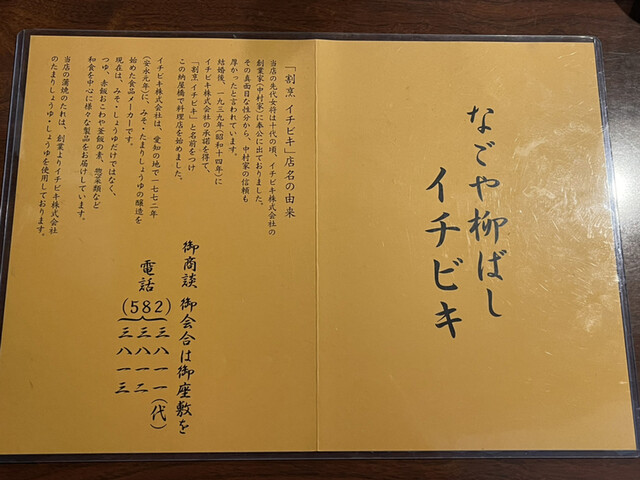 なごや柳ばし
イチビキ
「割烹 イチビキ」店名の由来
当店の先代女将は十代の頃、イチビキ株式会社の
創業家(中村家)に奉公に出ておりました。
その真面目な性分から、中村家の信頼も
厚かったと言われています。
結婚後、一九三九年(昭和十四年)に
イチビキ株式会社の承諾を得て、
「割烹 イチビキ」と名前をつけ
この納屋橋で料理店を始めました。
イチビキ株式会社は、愛知の地で一七七二年
(安永元年)に、みそ・たまりしょうゆの醸造を
始めた食品メーカーです。
現在は、みそ・しょうゆだけではなく、
つゆ、赤飯おこわや釜飯の素、惣菜類など
和食を中心に様々な製品をお届けしています。
当店の蒲焼のたれは、創業よりイチビキ株式会社
のたまりしょうゆ・しょうゆを使用しております。
御商談 御会合は御座敷を
電話
(582)
三八一一(代)
三八一二
三八一三